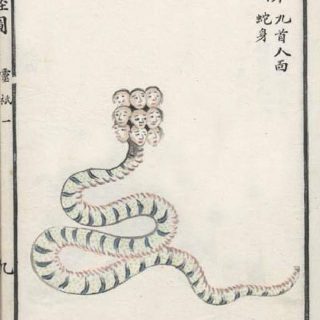 九首人面
蛇身
圖
靈祇一
九